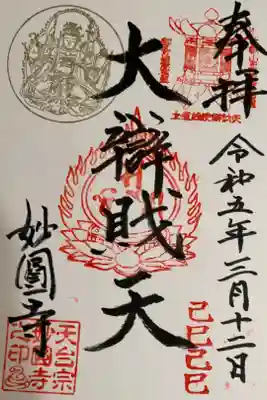 奉拝
令和五年三月十二日
己巳己巳
大辯財天
妙圓寺
天台宗